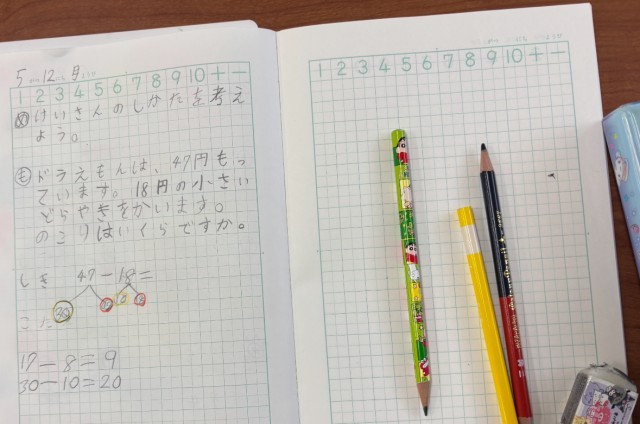 5 12 月
1 2 3 4 5 6 7 8 9 10 + −
め けいさんのしかたを考え
よう。
も ドラえもんは、47円もっ
ています。18円の小さい
どらやきをかいます。
のこりはいくらですか。
しき 47−18=
30 10
こた
17−8=9
30−10=20
1 2 3 4 5 6 7 8 9 10 + −